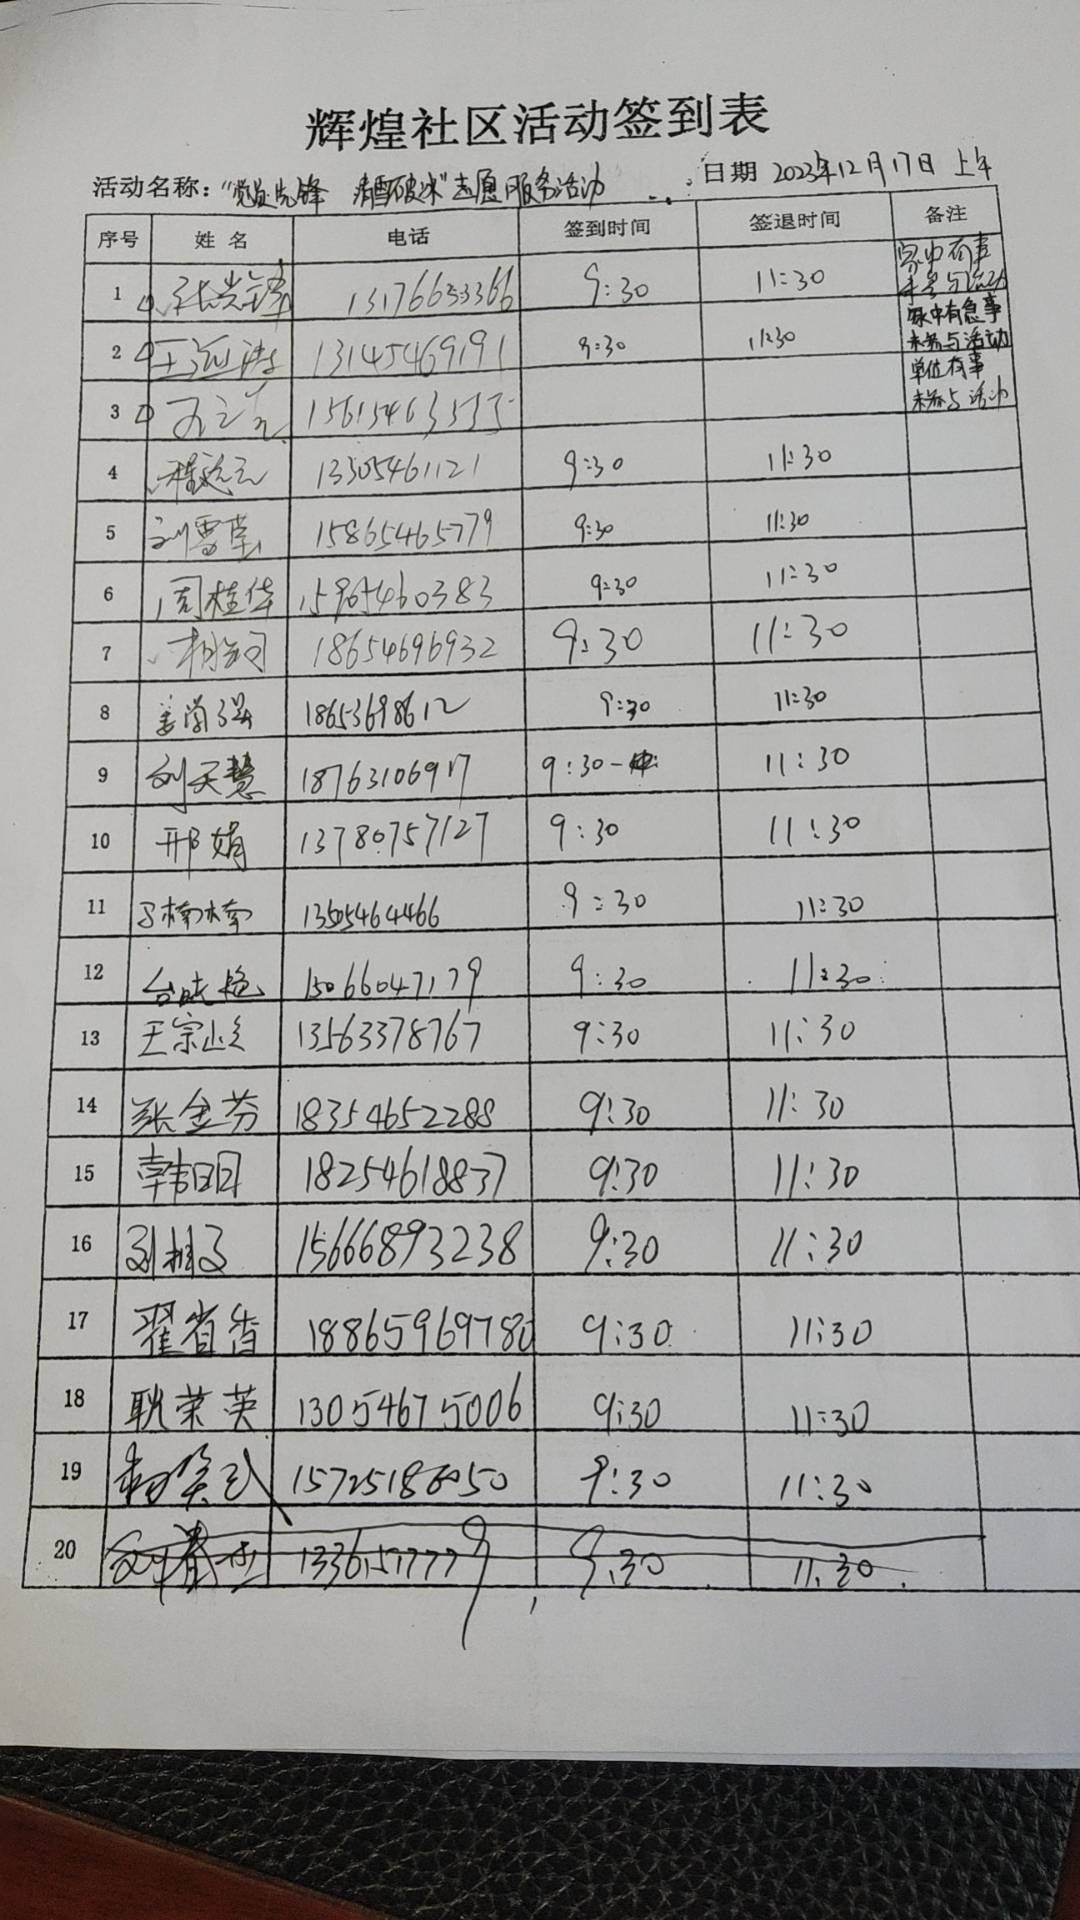 辉煌社区活动签到表
活动名称：“党员先锋 清雪破冰”志愿服务活动 日期 2023年12月17日 上午
序号 姓名 电话 签到时间 签退时间 备注
1 张光锋 13176653366 9:30 11:30 家中有事
未参与活动
2 13145469191 9:30 11:30 家中有急事
未参与活动
3 单位有事
未参与活动
4 13305461121 9:30 11:30
5 刘雪莹 15865465779 9:30 11:30
6 周桂华 15965460383 9:30 11:30
7 18654696932 9:30 11:30
8 姜尚强 18653698612 9:30 11:30
9 刘天慧 18763106917 9:30 11:30
10 邢娟 13780757127 9:30 11:30
11 马楠楠 13505464466 9:30 11:30
12 台晓艳 15066047179 9:30 11:30
13 王宗山 13563378767 9:30 11:30
14 张金芬 18354652288 9:30 11:30
15 韩明 18254618837 9:30 11:30
16 15666893238 9:30 11:30
17 翟省香 18865969780 9:30 11:30
18 耿荣英 13054675006 9:30 11:30
19 15725186050 9:30 11:30
20 13361517779 9:30 11:30